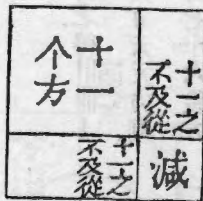 十一
个方
十一之
不及從
十一之
不及從
減